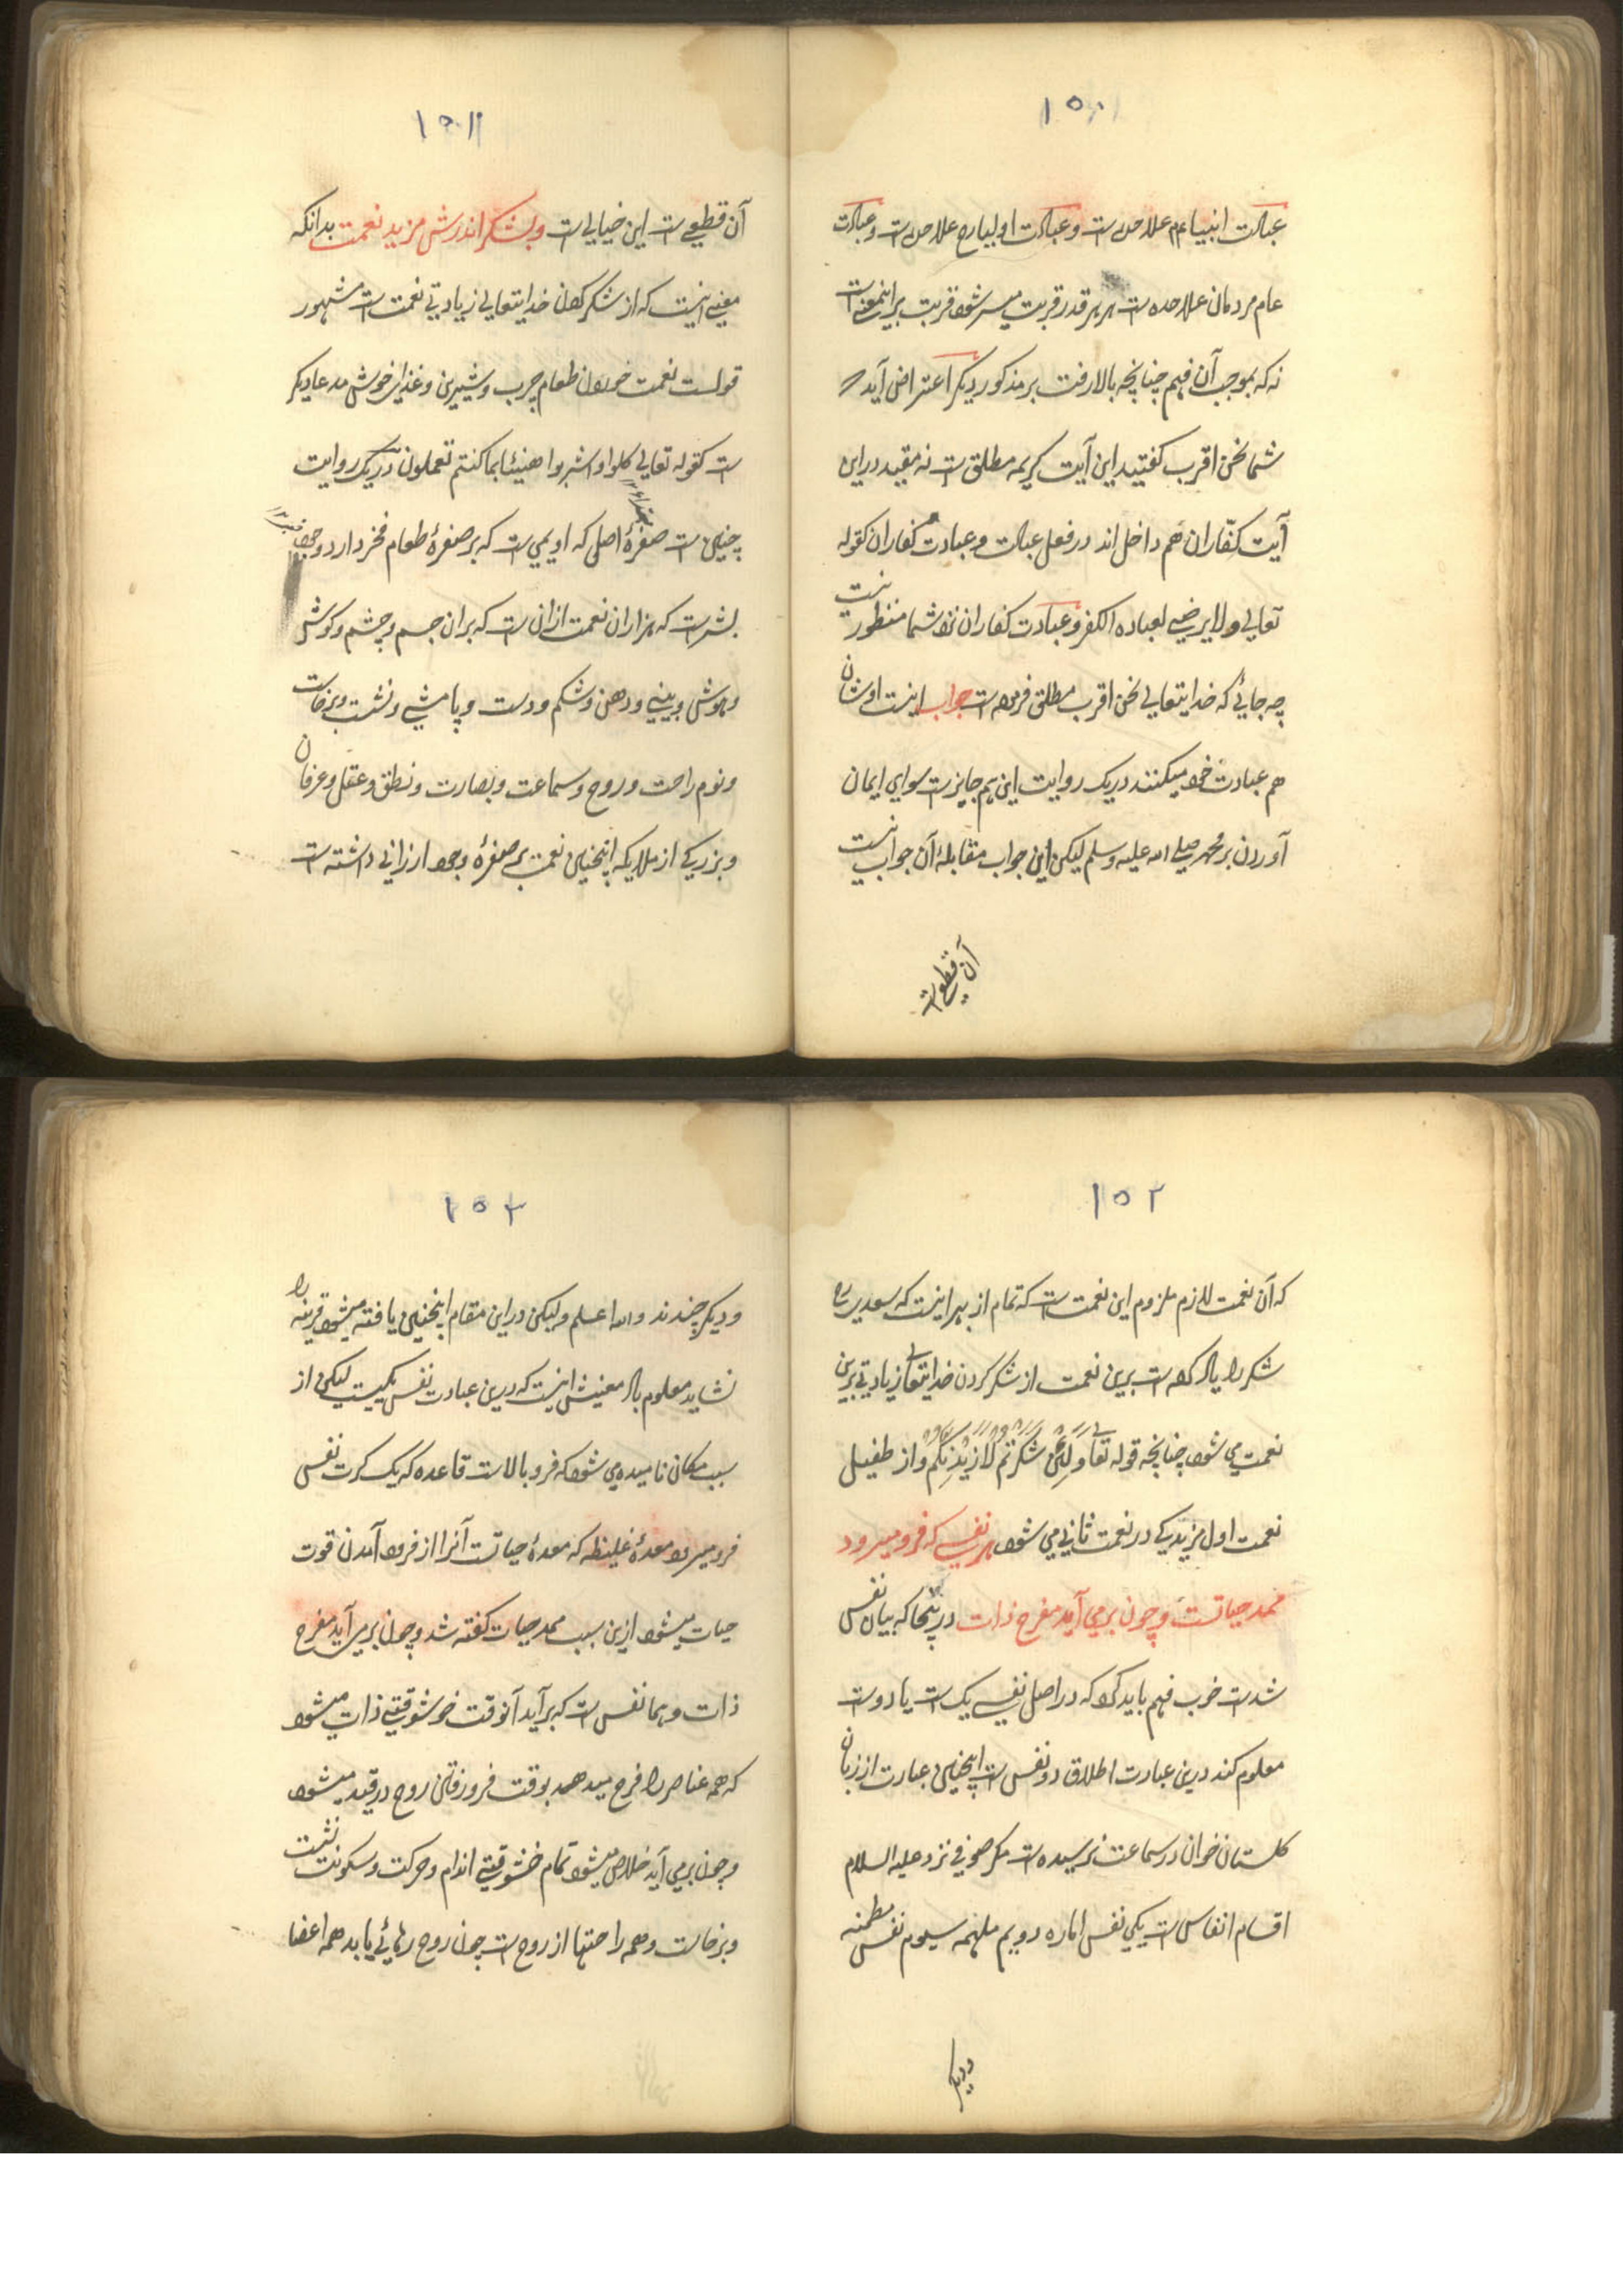 ١٥٠
عبادت انبیا ءم علاحده است و عبادت اولیا رح علاحده است و عبادت
عام مردمان علاحده است هر بر قدر قربت میسر شود قربت براینمعنی است
نه که بموجب آن فهم چنانچه بالا رفت بر مذکور دیگر اعتراض آید
شما نحن اقرب گفتید این آیت کریمه مطلق است نه مقید در این
آیت کفّاران هم داخل اند در فعل عبادت و عبادت کفاران کقوله
تعالی ولا یرضی لعباده الکفر و عبادت کفاران نزد شما منظور نیست
چه جائی که خدایتعالی نحن اقرب مطلق فرموده است جواب اینست اوشان
هم عبادت خود میکنند در یک روایت این هم جایز است سوای ایمان
آوردن بر محمد صلی الله علیه وسلم لیکن این جواب مقابلهٔ آن جواب نیست
آن قطعی است
١٥١
آن قطعی است این خیالی است و بشکر اندرش مزید نعمت بدانکه
معنی اینست که از شکر کردن خدایتعالی زیادتی نعمت است مشهور
قولست نعمت خوردن طعام چرب و شیرین و غذای خوش مدعا دیگر
است کقوله تعالی کلوا واشربوا هنیئا بما کنتم تعملون در یک روایت
چنین است صفرهٔ اصل که اویمی است که بر صفرهٔ طعام فخر دارد وجود
بشر است که هزاران نعمت ازان است که بران جسم و چشم و گوش
و هوش و بینی و دهن و شکم و دست و پا مشی و نشست و برخاست
و نوم راحت و روح و سماعت و بصارت و نطق و عقل و عرفان
و بزرگی از ملایکه اینچنین نعمت بر صفرهٔ وجود ارزانی داشته است
١٥٢
که آن نعمت لازم ملزوم این نعمت است که تمام از بهر اینست که سعدی ره
شکر را یاد کرده است برین نعمت از شکر کردن خدایتعالی زیادتی برین
نعمت می شود چنانچه قوله تعالی وَلَئِنْ شَکَرْتُمْ لَاَزِیْدَنَّکُمْ و از طفیل
نعمت اول مزیدیکی در نعمت ثانی می شود هر نفسی که فرو میرود
ممد حیاتست و چون برمی آید مفرح ذات در ینجا که بیان نفس
شدست خوب فهم باید کرد که در اصل نفس یک است یا دوست
معلوم کند درین عبارت اطلاق دو نفس است اینچنین عبارت از زبان
گلستان خوان در سماعت نرسیده است مگر صوفی نزد علیه السلام
اقسام انفاس است یکی نفس اماره دویم ملهمه سیوم نفس مطمئنه
و دیگر
١٥٣
و دیگر چندند والله اعلم و لیکن در این مقام اینچنین یافته میشود قرینه را
نشاید معلوم باد معنیش اینست که درین عبارت نفس یکیست لیکن از
سبب مکان نامیده می شود که فرو بالاست قاعده که یک کرت نفس
فرو میرود معدهٔ غلیظه که معدهٔ حیاتست آنرا از فرود آمدن قوت
حیات میشود ازین سبب ممد حیات گفته شد و چون برمی آید مفرح
ذات و هما نفس است که برآید آنوقت خوشوقتی ذات میشود
که همه عناصر را فرح میدهد بوقت فرو رفتن روح در قید میشود
و چون برمی آید خلاص میشود تمام خوشوقتی اندام و حرکت و سکونت نشست
و برخاست و همه راحتها از روح است چون روح رهائی یابد همه اعضا